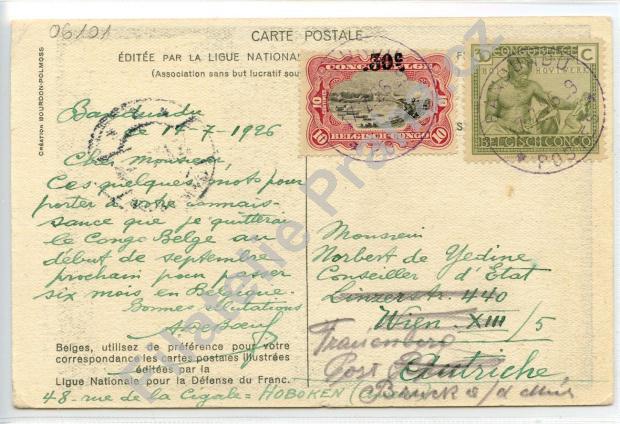 06/01
CARTE POSTALE
ÉDITÉE PAR LA LIGUE NATIONAL
(Association sans but lucratif sou
CRÉATION BOURDON-POLMOSS
30c
CONGO BELGE
10 10
10 10
BELGISCH-CONGO
CONGO BELGE
C
BELGISCH CONGO
Filatelie Praga.cz
Banduudu
le 14-7-1926
Cher monsieur,
Ces quelques mots pour
porter à votre connais-
sance que je quitterai
le Congo Belge au
début de septembre
prochain pour passer
six mois en Belgique.
Bonnes salutations
A. De Boeuf
Belges, utilisez de préférence pour votre
correspondance les cartes postales illustrées
éditées par la
Ligue Nationale pour la Défense du Franc.
48 - rue de la Cigale = HOBOKEN
Monsieur
Norbert de Yedine
Conseiller d'Etat
Linzerstr. 440
Wien XIII/5
Frauenberg
Post
Autriche
Bruck a/d Mur